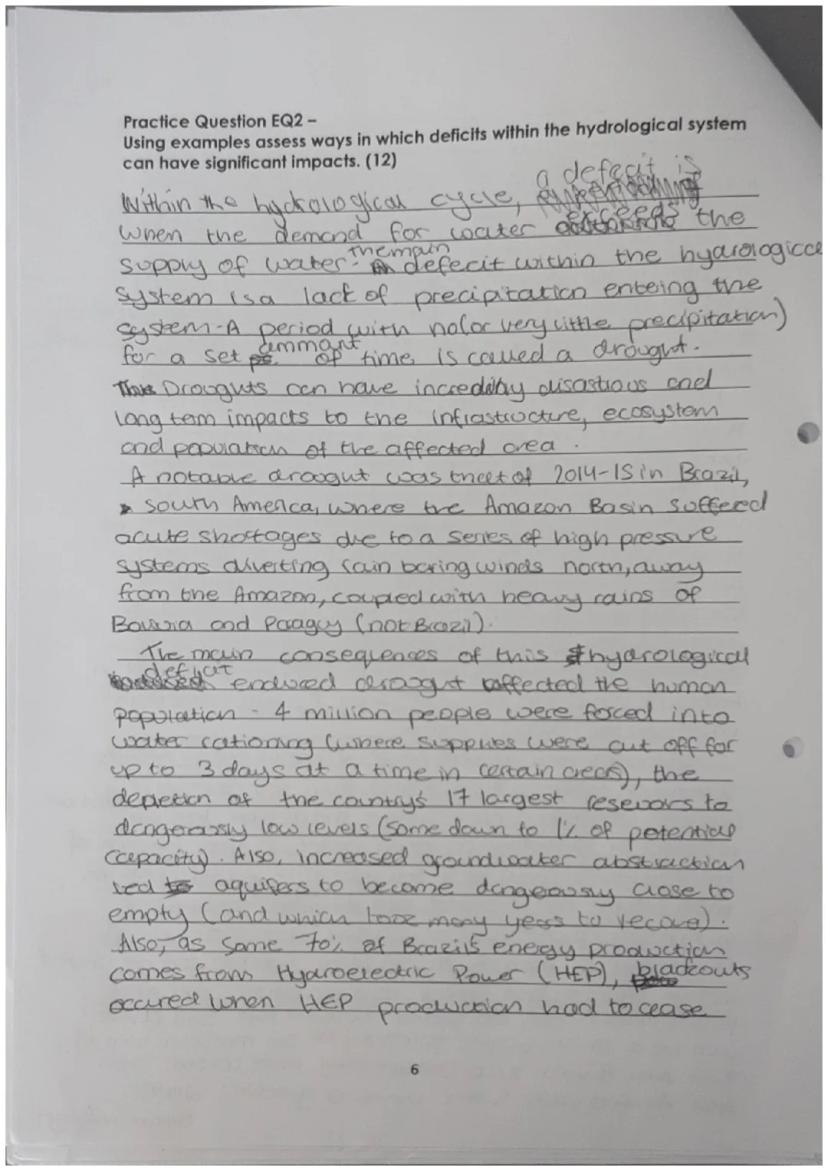 Practice Question EQ2 –
Using examples assess ways in which deficits within the hydrological system
can have significant impacts. (12)
a defecit is
Within the hydrological cycle,
when the demand for water exceeds the
supply of water. The main defecit within the hydrological
system is a lack of precipitation enteing the
system - A period (with no (or very little precipitation)
for a set ammant of time, is called a drought.
Droughts can have incredibly disastrous and
long term impacts to the infrastructure, ecosystem
and population of the affected area.
A notable drought was that of 2014-15 in Brazil,
South America, where the Amazon Basin suffered
acute shortages due to a series of high pressure
systems diverting rain baring winds north, away
from the Amazon, coupled with heavy rains of
and (not Brazil).
The main consequences of this hydrological
deficit enduced drought affected the human
population - 4 million people were forced into
water rationing (where supplies were cut off for
up to 3 days at a time in certain areas), the
depletion of the country's 17 largest resevoirs to
dangerously low levels (some down to 1% of potential
capacity). Also, increased groundwater abstraction
led aquifers to become dangerously close to
empty (and which take many years to recover).
Also, as some 70% of Brazil's energy production
comes from Hydroelectric Power (HEP), blackouts
occured when HEP production had to cease
6